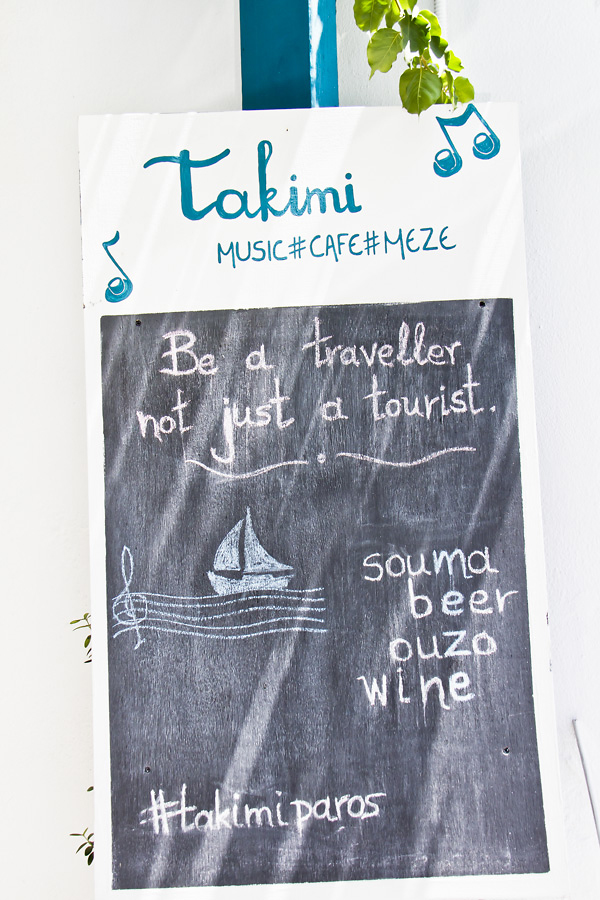 Takimi
MUSIC#CAFE#MEZE
Be a traveller
not just a tourist.
souma
beer
ouzo
wine
#takimiparos